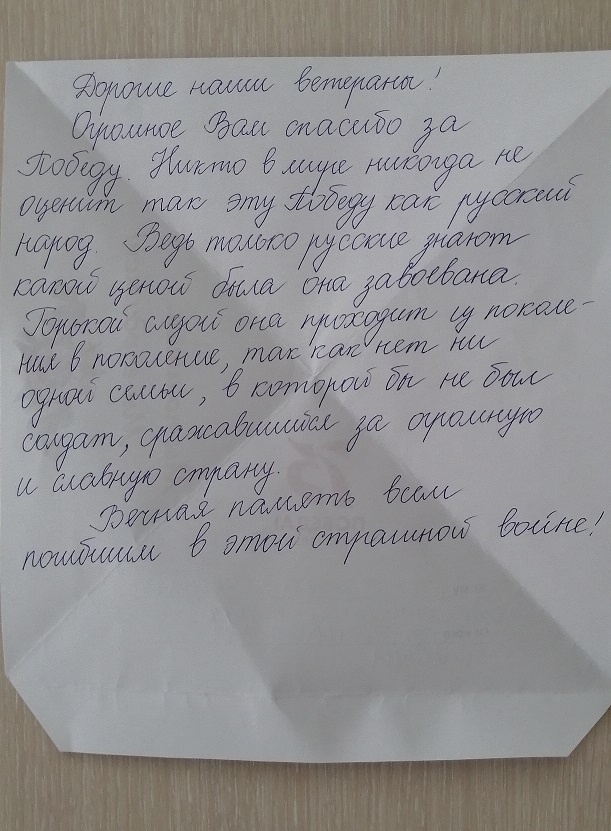 Дорогие наши ветераны!
Огромное Вам спасибо за
Победу. Никто в мире никогда не
оценит так эту Победу как русский
народ. Ведь только русские знают
какой ценой была она завоевана.
Горькой слезой она проходит из поколе-
ния в поколение, так как нет ни
одной семьи, в которой бы не был
солдат, сражавшийся за огромную
и славную страну.
Вечная память всем
погибшим в этой страшной войне!